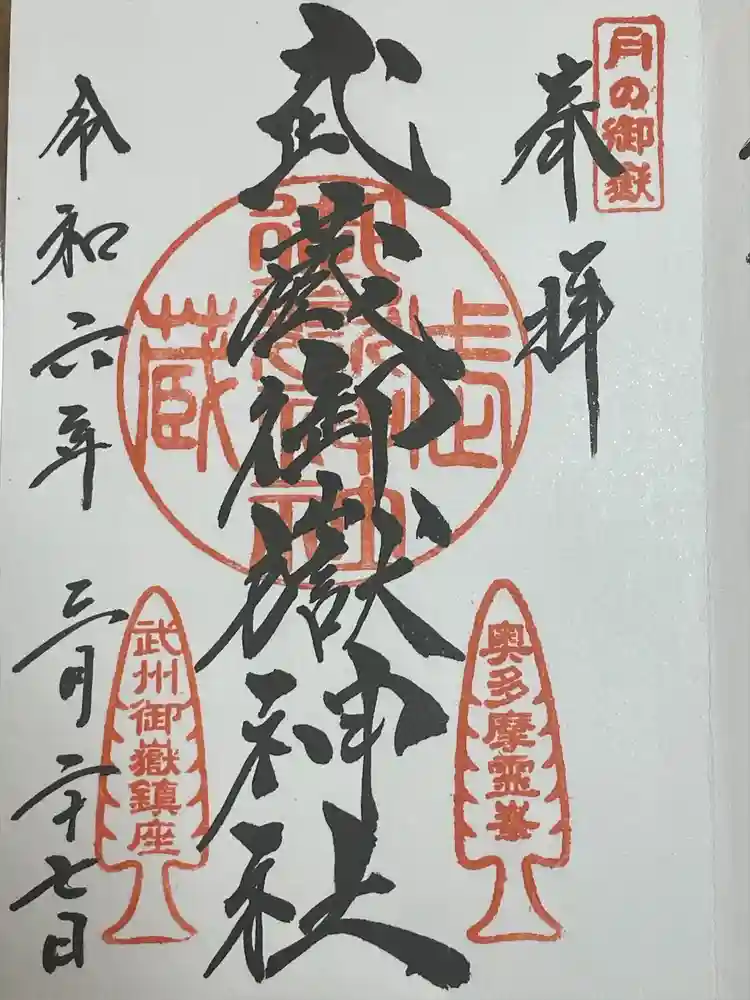 月の御嶽
奉拝
武蔵御嶽神社
武蔵
御嶽神社
奥多摩霊峯
武州御嶽鎮座
令和六年三月二十七日